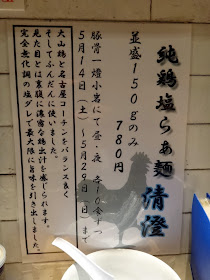 純鶏塩らぁ麺 清澄
並盛150gのみ
780円
豚骨一燈小岩にて、昼・夜 各10食ずつ
5月14日(土)~5月29日(日)まで
大山鶏と名古屋コーチンをバランス良く
そしてふんだんに使いました。
見た目とは裏腹に濃密な鶏出汁を感じられます。
完全無化調の塩ダレで最大限に旨味を引き出しました。